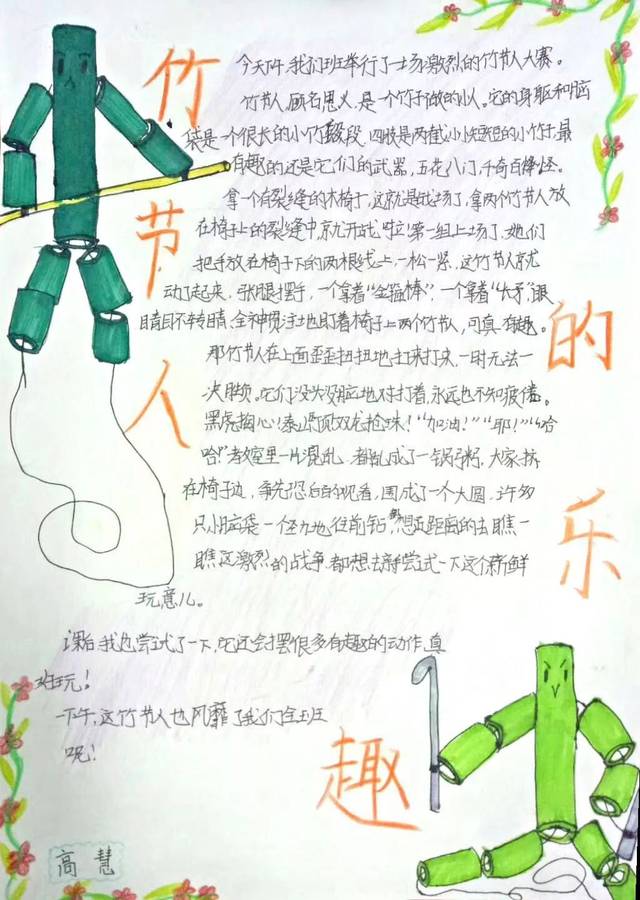 竹节人的乐趣
今天下午,我们班举行了一场激烈的竹节人大赛。
竹节人,顾名思义,是一个竹子做的小人。它的身躯和脑
袋是一个很长的小竹段,四肢是两截小小短短的小竹子,最
有趣的还是它们的武器,五花八门,千奇百怪。
拿一个有裂缝的木椅子,这就是战场了,拿两个竹节人放
在椅子上的裂缝中,就开战啦!第一组上场了,她们
把手放在椅子下的两根线上,一松一紧,这竹节人就
动了起来,张腿摆手,一个拿着“金箍棒”,一个拿着“长矛”,眼
睛目不转睛、全神贯注地盯着椅子上两个竹节人,可真有趣。
那竹节人在上面歪歪扭扭地打来打去,一时无法一
决胜负,它们没头没脑地对打着,永远也不知疲倦。
黑虎掏心!泰山压顶!双龙抢珠!“加油!”“耶!”“哈
哈!”教室里一片混乱,都乱成了一锅粥,大家挤
在椅子边,争先恐后的观看,围成了一个大圆,许多
只小脑袋一个劲地往前钻,都想近距离的去瞧一
瞧这激烈的战争,都想去亲尝试一下这个新鲜
玩意儿。
课后,我也尝试了一下,它还会摆很多有趣的动作,真
好玩!
一下午,这竹节人也风靡了我们全班
呢!
高慧